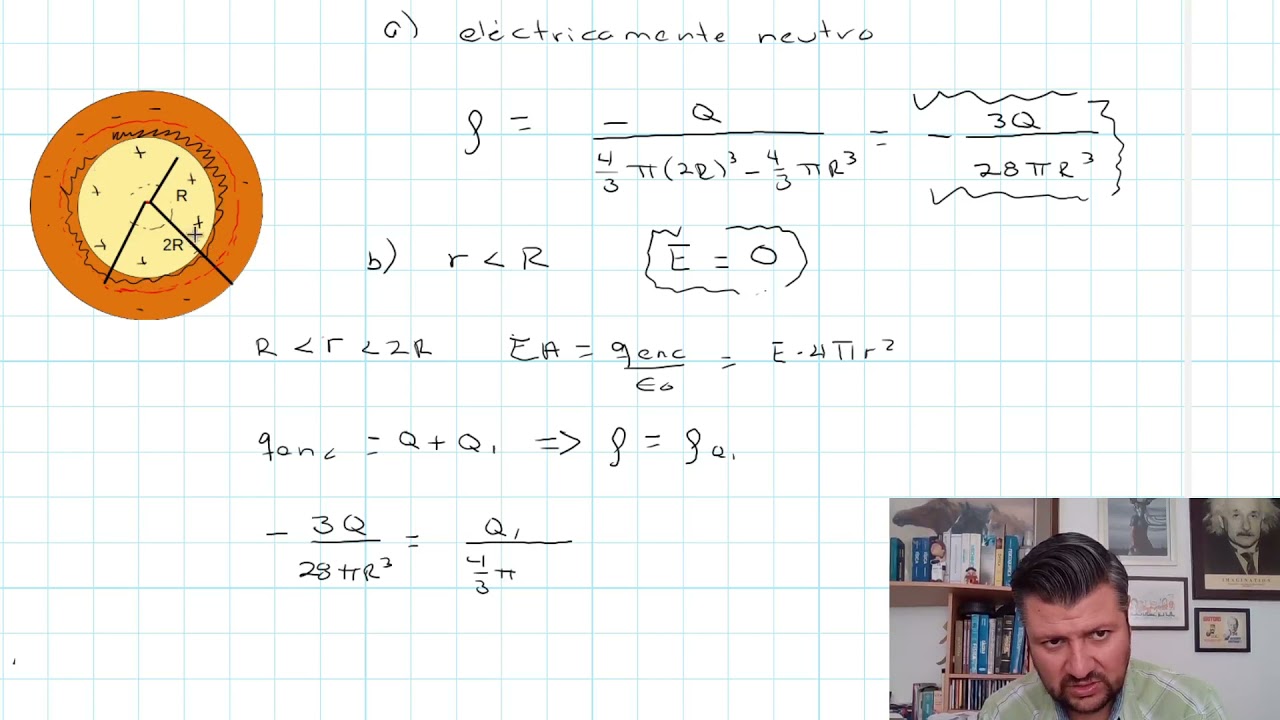 a) eléctricamente neutro
ρ = - Q / (4/3 π(2R)³ - 4/3 πR³) = - 3Q / 28πR³
R
2R
b) r < R E = 0
R < r < 2R EA = qenc / ϵ0 = E · 4πr²
qenc = Q + Q₁ => ρ = ρQ₁
- 3Q / 28πR³ = Q₁ / 4/3 π
IMAGINATION